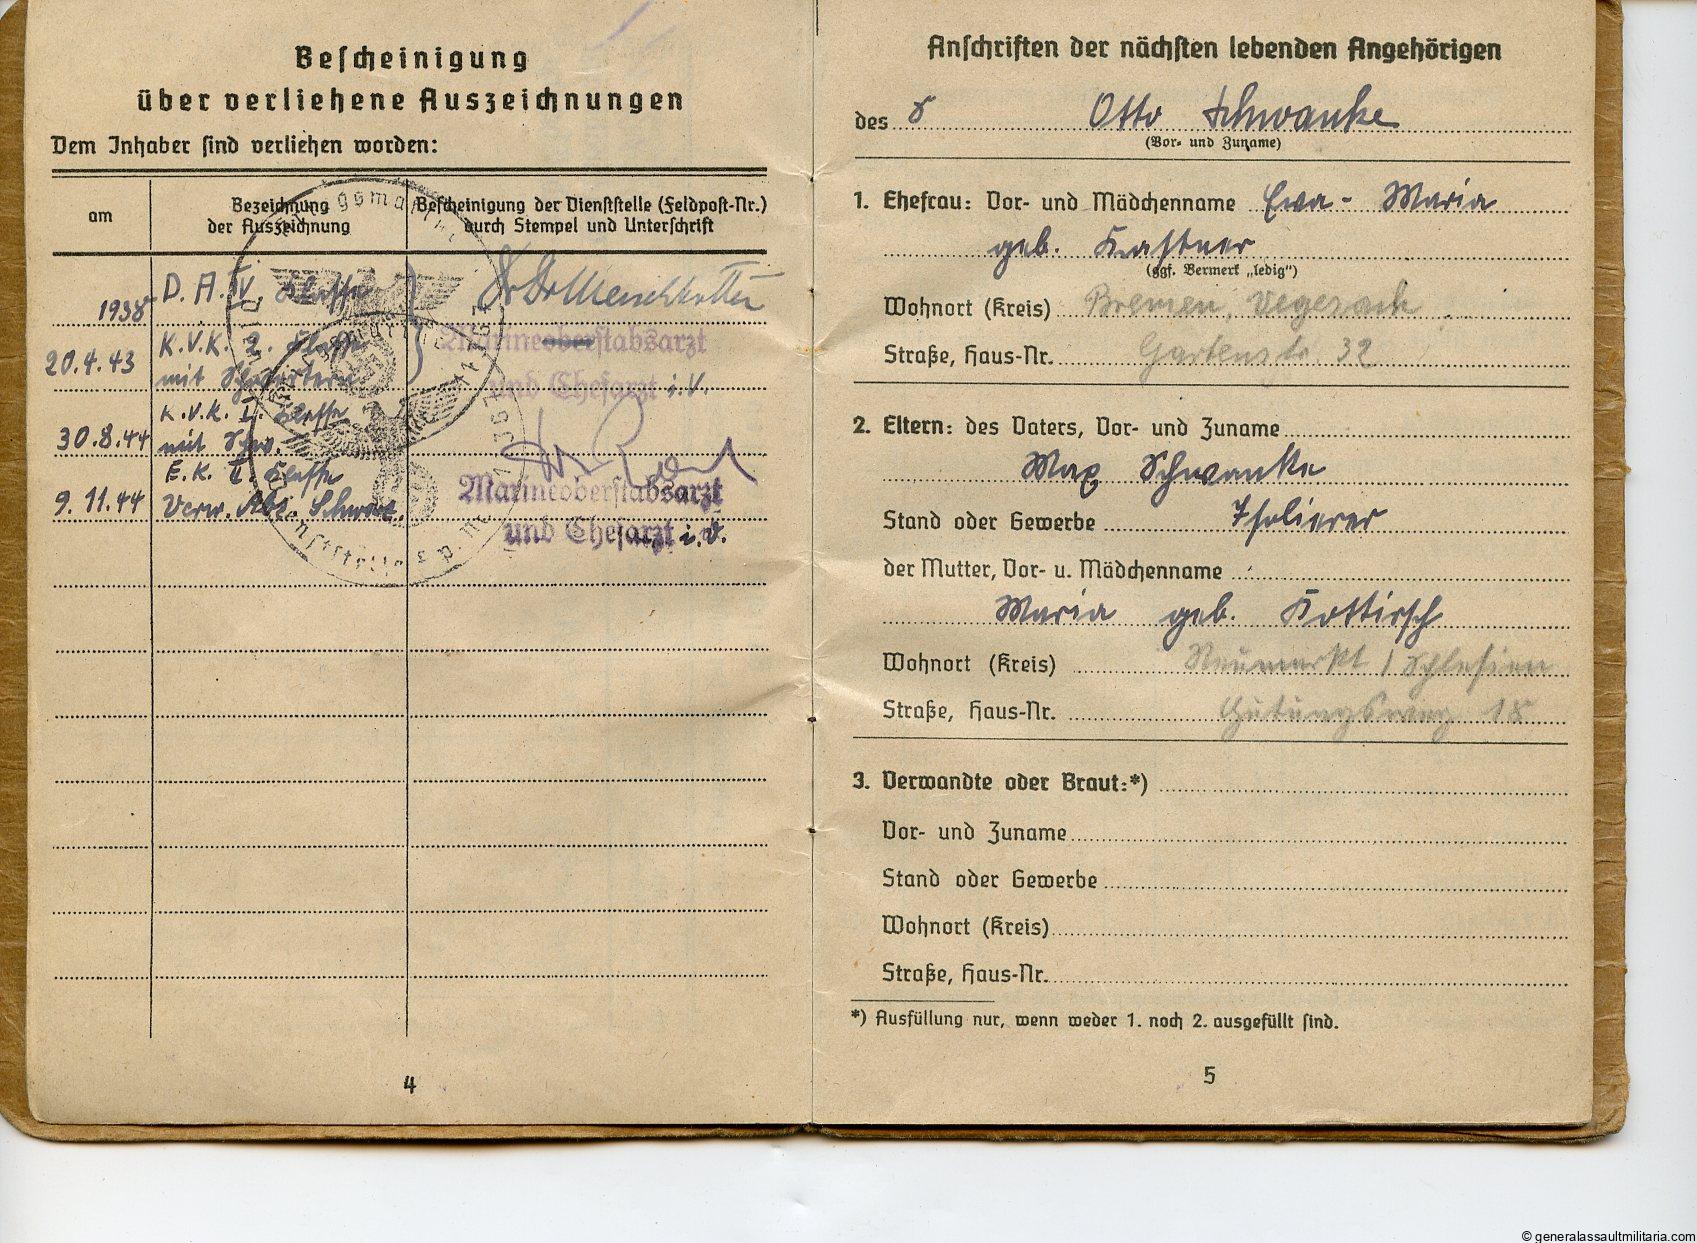 Bescheinigung
über verliehene Auszeichnungen
Dem Inhaber sind verliehen worden:
am
Bezeichnung
der Auszeichnung
Bescheinigung der Dienststelle (Feldpost-Nr.)
durch Stempel und Unterschrift
1938 D. A. IV. Klasse
K.V.K. 2. Klasse
20.4.43 mit Schwertern
Marineoberstabsarzt
und Chefarzt i.V.
K.V.K. I. Klasse
30.8.44 mit Schw.
E.K. II. Klasse
9.11.44 Verw. Abz. Schwarz.
Marineoberstabsarzt
und Chefarzt i.V.
4
Anschriften der nächsten lebenden Angehörigen
des Otto Schwanke
(Vor- und Zuname)
1. Ehefrau: Vor- und Mädchenname Eva-Maria
geb. Kastner
(ggf. Vermerk „ledig“)
Wohnort (Kreis) Bremen, Vegesack
Straße, Haus-Nr. Gartenstr. 32
2. Eltern: des Vaters, Vor- und Zuname
Max Schwanke
Stand oder Gewerbe Isolierer
der Mutter, Vor- u. Mädchenname
Maria geb. Kottirsch
Wohnort (Kreis) Neumarkt / Schlesien
Straße, Haus-Nr. 18
3. Verwandte oder Braut:*)
Vor- und Zuname
Stand oder Gewerbe
Wohnort (Kreis)
Straße, Haus-Nr.
*) Ausfüllung nur, wenn weder 1. noch 2. ausgefüllt sind.
5
© generalassaultmilitaria.com